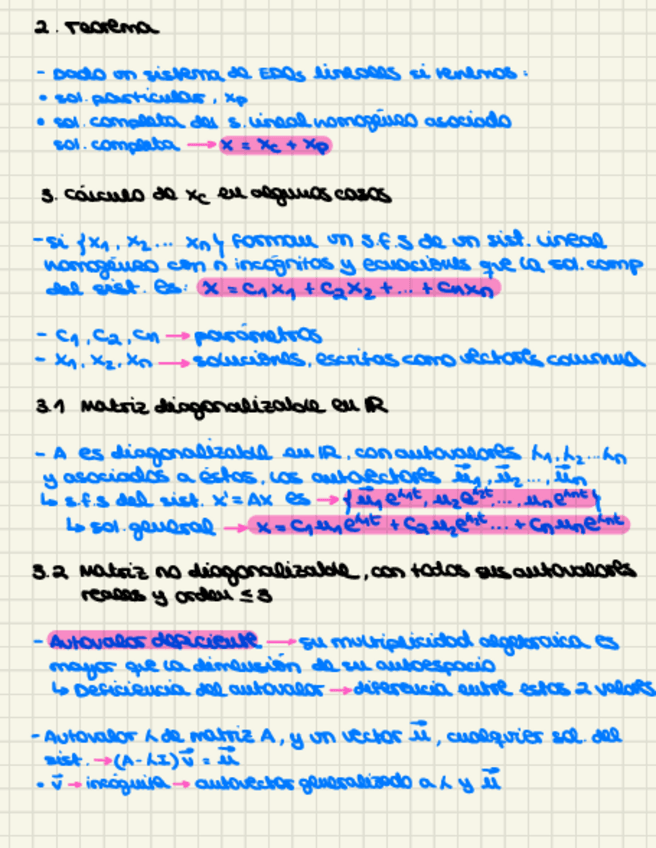 2. Teorema
- Dado un sistema de EDOs lineales si tenemos:
• sol. particular, xp
• sol. completa del s. lineal homogéneo asociado
sol. completa → x = xc + xp
3. Cálculo de xc en algunos casos
- si {x1, x2 ... xn} forman un s.f.s de un sist. lineal
homogéneo con n incógnitas y ecuaciones que la sol. comp
del sist. es: x = c1x1 + c2x2 + ... + cnxn
- c1, c2, cn → parámetros
- x1, x2, xn → soluciones, escritas como vectores columna
3.1 Matriz diagonalizable en IR
- A es diagonalizable en IR, con autovalores λ1, λ2 ... λn
y asociados a éstos, los autovectores u⃗1, u⃗2 ..., u⃗n
↳ s.f.s del sist. x' = Ax es → {u⃗1e^λ1t, u2e^λ2t, ..., une^λnt}
↳ sol. general → x = c1u1e^λ1t + c2u2e^λ2t ... + cnune^λnt
3.2 Matriz no diagonalizable, con todos sus autovalores
reales y orden ≤ 3
- Autovalor deficiente → su multiplicidad algebraica es
mayor que la dimensión de su autoespacio
↳ Deficiencia del autovalor → diferencia entre estos 2 valores
- Autovalor λ de matriz A, y un vector u⃗, cualquier sol. del
sist. → (A-λI)v⃗ = u⃗
• v⃗ → incógnita → autovector generalizado a λ y u⃗